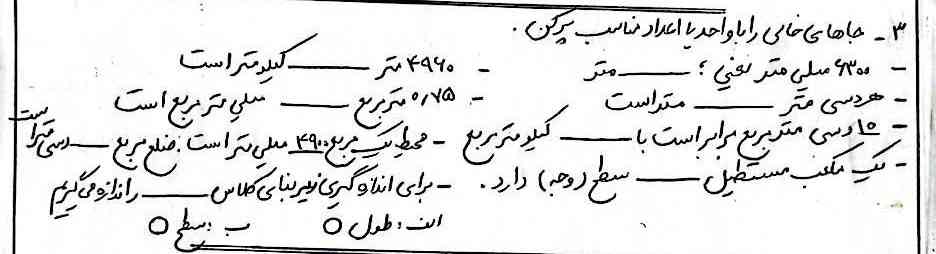 ۳- جاهای خالی را با واحد یا اعداد مناسب پر کن.
- ۶۳۰۰ میلی متر یعنی؛ ــــ متر - ۴۹۶۰ متر ــــ کیلومتر است
- هر دسی متر ــــ متر است - ۰/۷۵ متر مربع ــــ میلی متر مربع است
- ۱۵ دسی متر مربع برابر است با ــــ کیلومتر مربع - محیط یک مربع ۴۹۰۰ میلی متر است: ضلع مربع ــــ دسی متر است
- یک مکعب مستطیل ــــ سطح (وجه) دارد. - برای اندازه گیری زیر بنای کلاس ــــ را اندازه می گیریم
الف: طول ○ ب: سطح ○